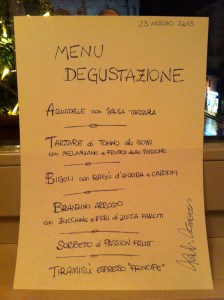 23 MARZO 2013
MENU
DEGUSTAZIONE
AQUADELLE con SALSA TARTARA
TARTARE di TONNO
con MELANZANE e FRUTTO della PASSIONE
BIGOLI con RAGÙ d'ANATRA e CARCIOFI
BRANZINO ARROSTO
con ZUCCHINE e FIORI di ZUCCA FARCITI
SORBETTO al PASSION FRUIT
TIRAMISÙ ESPRESSO "PRINCIPE"